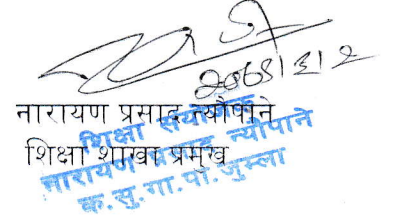 २०७९।३।२
नारायण प्रसाद न्यौपाने
शिक्षा शाखा प्रमुख
शिक्षा संयोजक
नारायण प्रसाद न्यौपाने
क.सु.गा.पा.जुम्ला